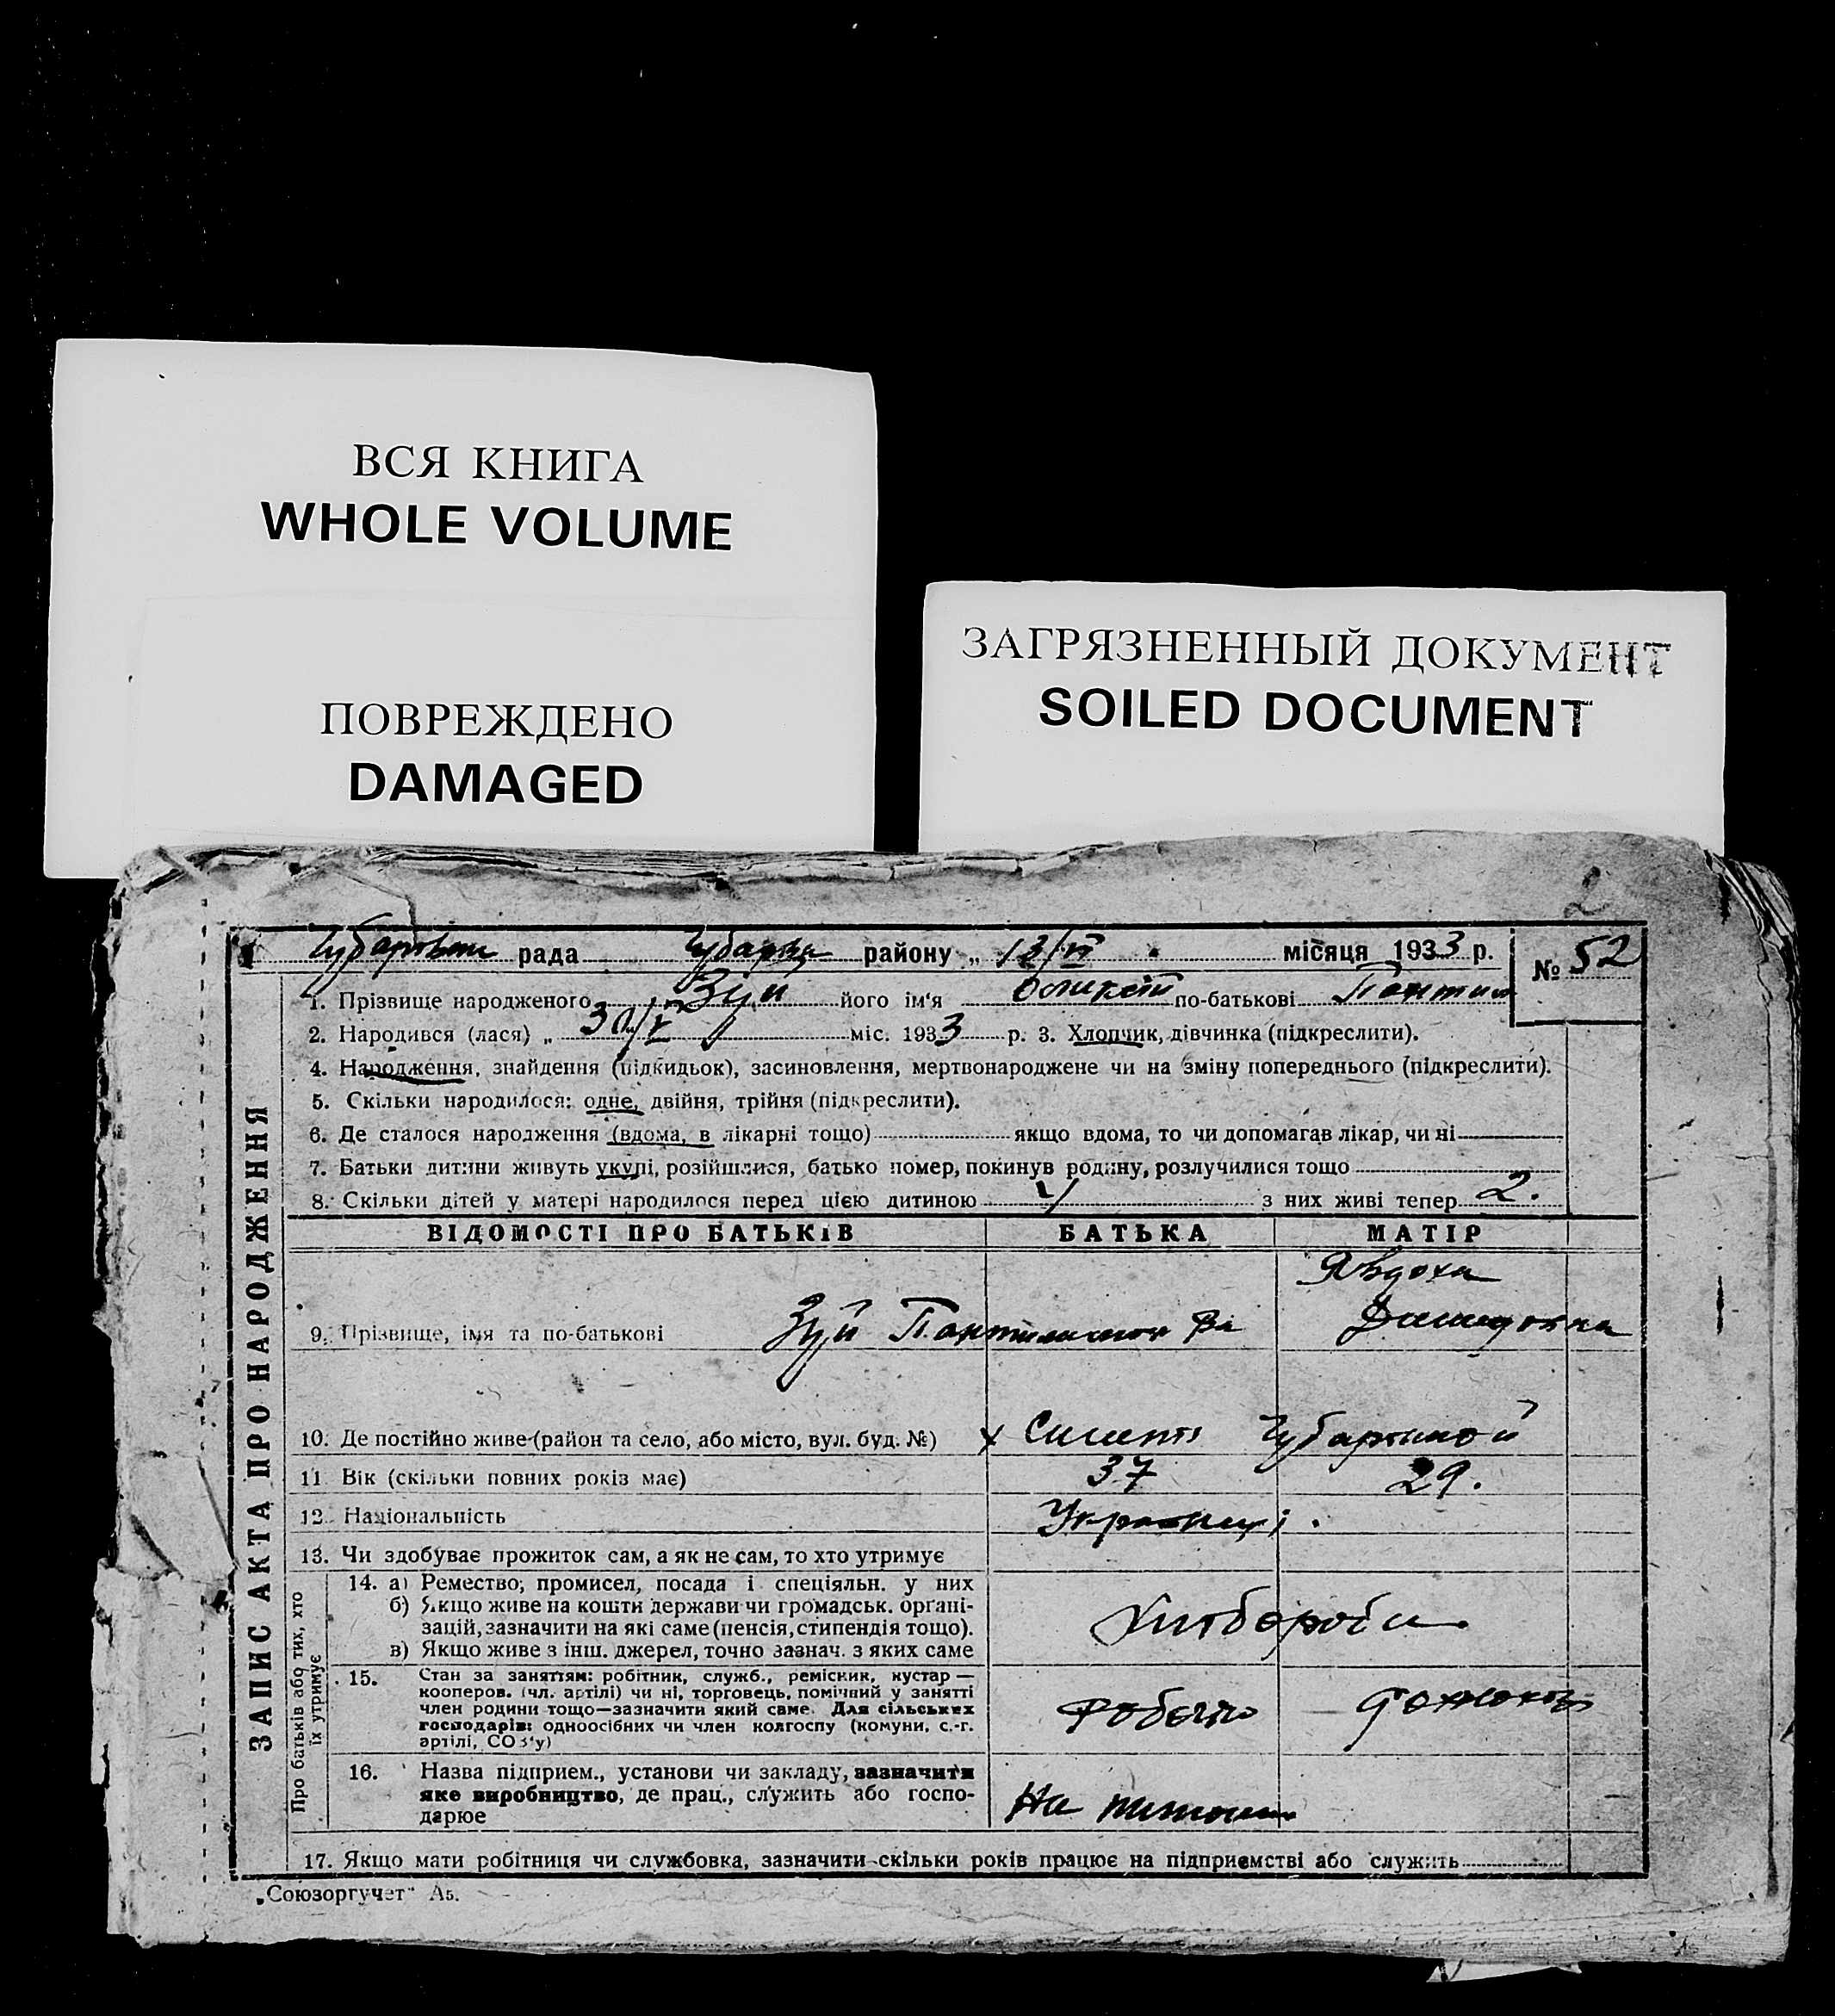 ВСЯ КНИГА
WHOLE VOLUME
ПОВРЕЖДЕНО
DAMAGED
ЗАГРЯЗНЕННЫЙ ДОКУМЕНТ
SOILED DOCUMENT
2
рада району „ 13/VI місяця 1933 р.
№ 52
1. Прізвище народженого Зуй його ім'я по-батькові
2. Народився (лася) „ 30/V міс. 1933 р. 3. Хлопчик, дівчинка (підкреслити).
4. Народження, знайдення (підкидьок), засиновлення, мертвонароджене чи на зміну попереднього (підкреслити).
5. Скільки народилося: одне, двійня, трійня (підкреслити).
6. Де сталося народження (вдома, в лікарні тощо) якщо вдома, то чи допомагав лікар, чи ні
7. Батьки дитини живуть укупі, розійшлися, батько помер, покинув родину, розлучилися тощо
8. Скільки дітей у матері народилося перед цією дитиною 4 з них живі тепер 2.
ЗАПИС АКТА ПРО НАРОДЖЕННЯ
ВІДОМОСТІ ПРО БАТЬКІВ БАТЬКА МАТІР
Явдоха
9. Прізвище, імя та по-батькові Зуй
10. Де постійно живе (район та село, або місто, вул. буд. №)
11. Вік (скільки повних років має) 37 29.
12. Національність Українці
13. Чи здобуває прожиток сам, а як не сам, то хто утримує
Про батьків або тих, хто їх утримує
14. а) Ремество, промисел, посада і спеціяльн. у них
б) Якщо живе на кошти держави чи громадськ. органі-
зацій, зазначити на які саме (пенсія, стипендія тощо).
в) Якщо живе з інш. джерел, точно зазнач. з яких саме
Хлібороби
15. Стан за заняттям: робітник, служб., ремісник, кустар —
кооперов. (чл. артілі) чи ні, торговець, помічний у занятті
член родини тощо—зазначити який саме. Для сільських
господарів: одноосібних чи член колгоспу (комуни, с.-г.
артілі, СОЗ'у)
16. Назва підприєм., установи чи закладу, зазначити
яке виробництво, де прац., служить або госпо-
дарює
На
17. Якщо мати робітниця чи службовка, зазначити скільки років працює на підприємстві або служить
„Союзоргучет" А5.